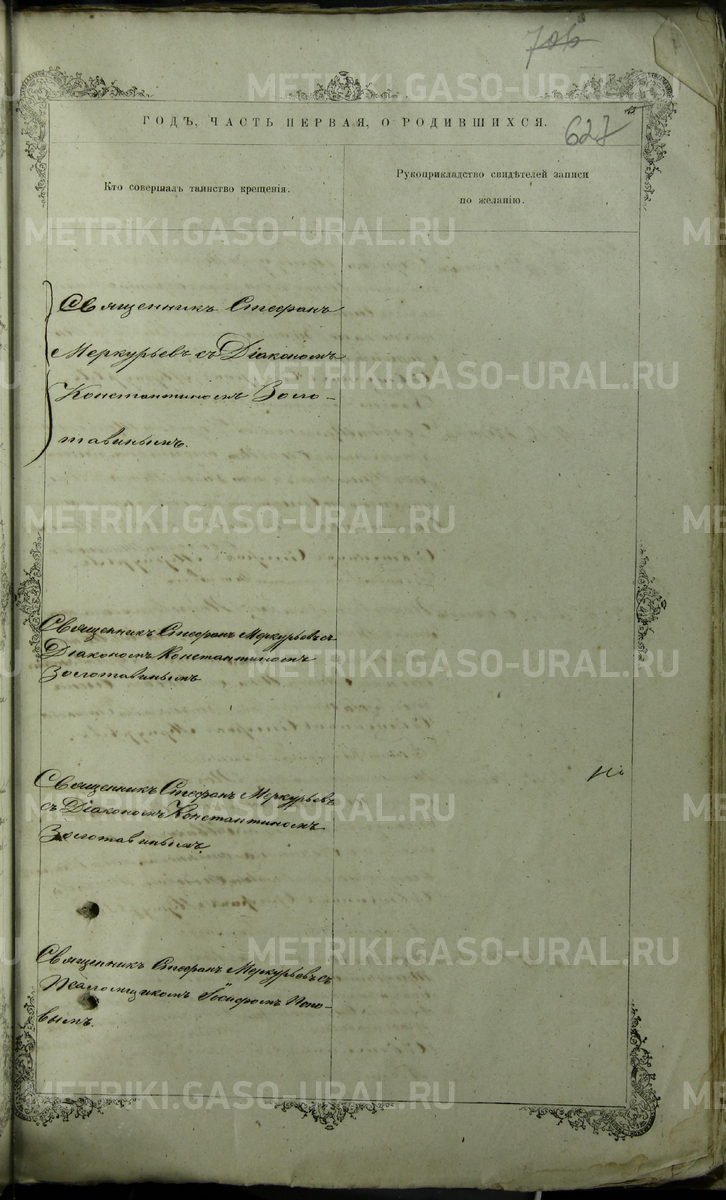 706
METRIKI.GASO-URAL.RU
ГОДЪ, ЧАСТЬ ПЕРВАЯ, О РОДИВШИХСЯ.
627
Кто совершалъ таинство крещенія.
Рукоприкладство свидѣтелей записи
по желанію.
METRIKI.GASO-URAL.RU
Священникъ Стефанъ
Меркурьевъ съ Діакономъ
METRIKI.GASO-URAL.RU
Константиномъ Золо-
тавинымъ.
METRIKI.GASO-URAL.RU
Священникъ Стефанъ Меркурьевъ съ
Діакономъ Константиномъ
METRIKI.GASO-URAL.RU
Золотавинымъ
Священникъ Стефанъ Меркурьевъ
съ Діакономъ Константиномъ
METRIKI.GASO-URAL.RU
Золотавинымъ.
Священникъ Стефанъ Меркурьевъ съ
METRIKI.GASO-URAL.RU
Псаломщикомъ Іосифомъ Попо-
вымъ.
METRIKI.GASO-URAL.RU